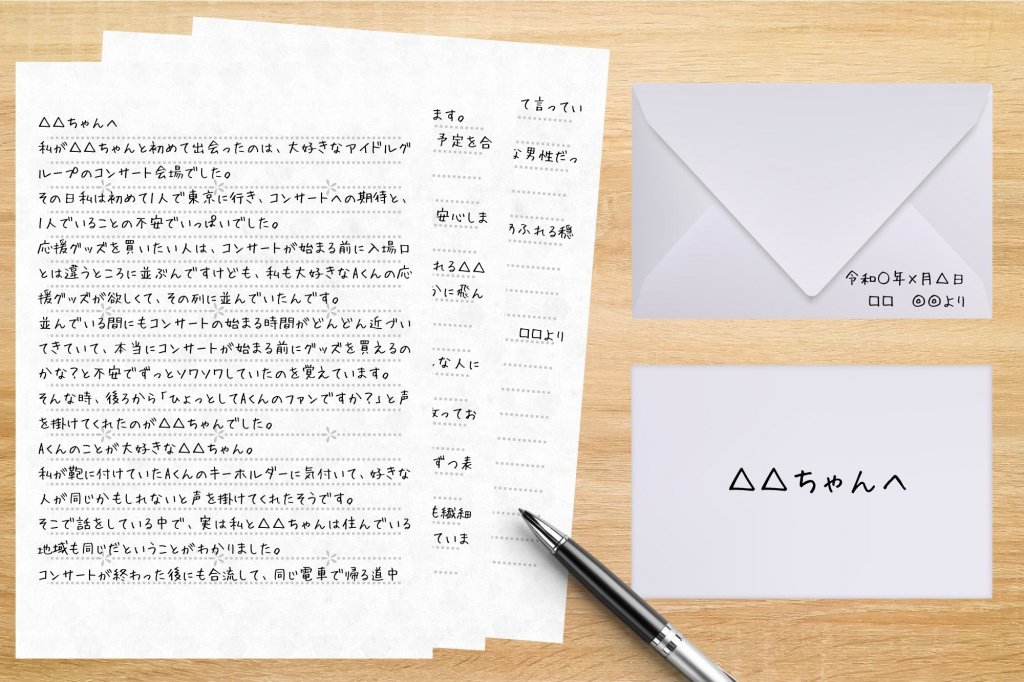 △△ちゃんへ
私が△△ちゃんと初めて出会ったのは、大好きなアイドルグ
ループのコンサート会場でした。
その日私は初めて1人で東京に行き、コンサートへの期待と、
1人でいることの不安でいっぱいでした。
応援グッズを買いたい人は、コンサートが始まる前に入場口
とは違うところに並ぶんですけども、私も大好きなAくんの応
援グッズが欲しくて、その列に並んでいたんです。
並んでいる間にもコンサートの始まる時間がどんどん近づい
てきていて、本当にコンサートが始まる前にグッズを買えるの
かな?と不安でずっとソワソワしていたのを覚えています。
そんな時、後ろから「ひょっとしてAくんのファンですか?」と声
を掛けてくれたのが△△ちゃんでした。
Aくんのことが大好きな△△ちゃん。
私が鞄に付けていたAくんのキーホルダーに気付いて、好きな
人が同じかもしれないと声を掛けてくれたそうです。
そこで話をしている中で、実は私と△△ちゃんは住んでいる
地域も同じだということがわかりました。
コンサートが終わった後にも合流して、同じ電車で帰る道中
ます。
予定を合
安心しま
れる△△
かに恋ん
な人に
ってお
ずつ表
も繊細
ていま
て言ってい
な男性だっ
ふれる穏
□□より
令和〇年×月△日
□□　◎◎より
△△ちゃんへ